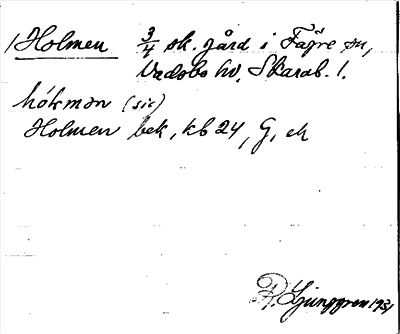 1 Holmen 3/4 sk. gård i Fägre sn,
Vadsbo hd, Skarab. l.
hókmən (sic)
Holmen bek, kb 24, G, ek
R. Ljunggren 1931